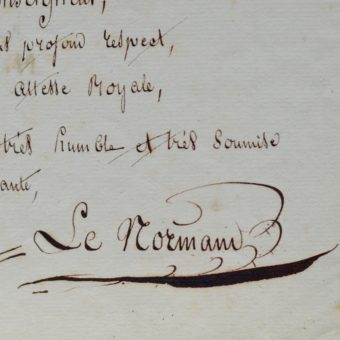 onseigneur,
profond respect,
Altesse Royale,
très humble et très soumise
ante,
Le Normand